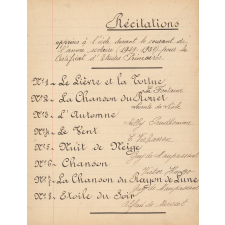 Récitations
apprises à l'école durant le courant de
l'année scolaire (1929-1930) pour le
Certificat d'Etudes Primaires
N°1 - Le Lièvre et la Tortue
La Fontaine
N°2 - La Chanson du Rouet
Leconte de Lisle
N°3 - L'Automne
Sully Prudhomme
N°4 - Le Vent
E. Verhaeren
N°5 - Nuit de Neige
Guy de Maupassant
N°6 - Chanson
Victor Hugo
N°7 - La Chanson du Rayon de Lune
Guy de Maupassant
N°8 - Etoile du Soir
Alfred de Musset